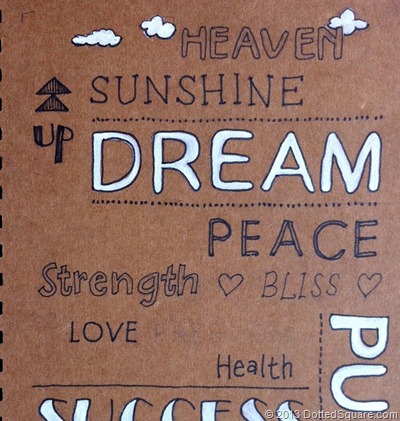 HEAVEN
SUNSHINE
UP
DREAM
PEACE
Strength ♡ BLISS ♡
LOVE
Health
PU
SUCCESS
© 2013 DottedSquare.com